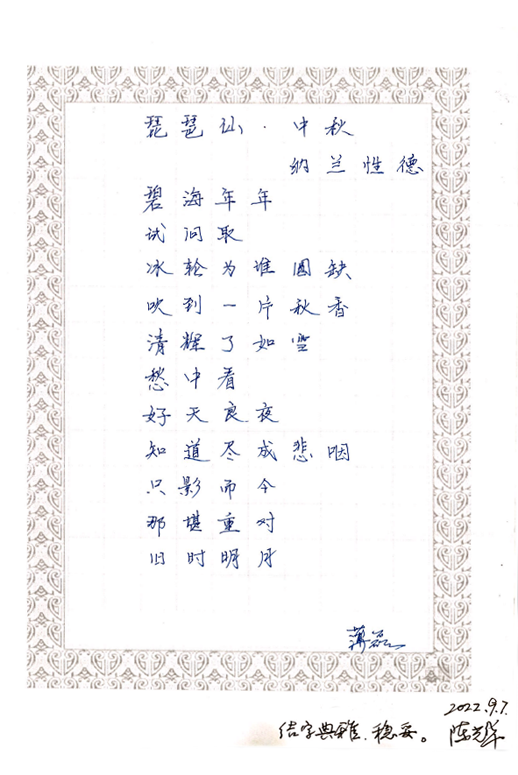 琵琶仙·中秋
纳兰性德
碧海年年
试问取
冰轮为谁圆缺
吹到一片秋香
清辉了如雪
愁中看
好天良夜
知道尽成悲咽
只影而今
那堪重对
旧时明月
薄磊
2022.9.7.
结字典雅、稳妥。